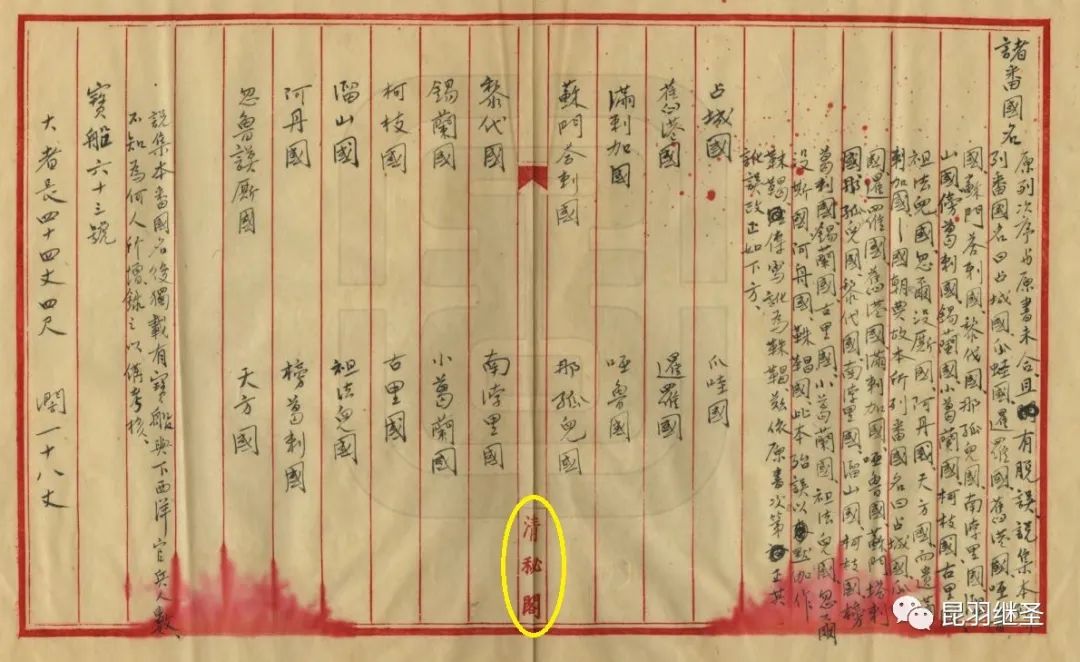 諸番國名
原列次序与原書未合且有脱誤説集本
列番國名曰占城國爪蛙國暹羅國舊港國啞魯
國蘇門荅剌國黎代國那孤兒國南浡里國
山國傍葛剌國錫蘭國小葛蘭國柯枝國古里
祖法兒國忽爾没厮國阿丹國天方國而遺
剌加國一國朝典故本所列番國名曰占城國爪
國暹羅國舊港國滿剌加國啞魯國蘇門塔剌
國那孤兒國黎代國南浡里國溜山國柯枝國榜
葛剌國錫蘭國古里國小葛蘭國祖法兒國忽
没斯國阿丹國靺鞨國此本殆誤以默伽作
靺鞨傳寫訛為靺鞨茲依原書次第正其
訛誤改正如下方
占城國 爪哇國
舊港國 暹羅國
滿剌加國 啞魯國
蘇門荅剌國 那孤兒國
清秘閣
黎代國 南浡里國
錫蘭國 小葛蘭國
柯枝國 古里國
溜山國 祖法兒國
阿丹國 榜葛剌國
忽魯謨厮國 天方國
説集本番國名後獨載有寶船與下西洋官兵人數
不知為何人所增録之以備考核
寶船六十三號
大者長四十四丈四尺 闊一十八丈
昆羽继圣